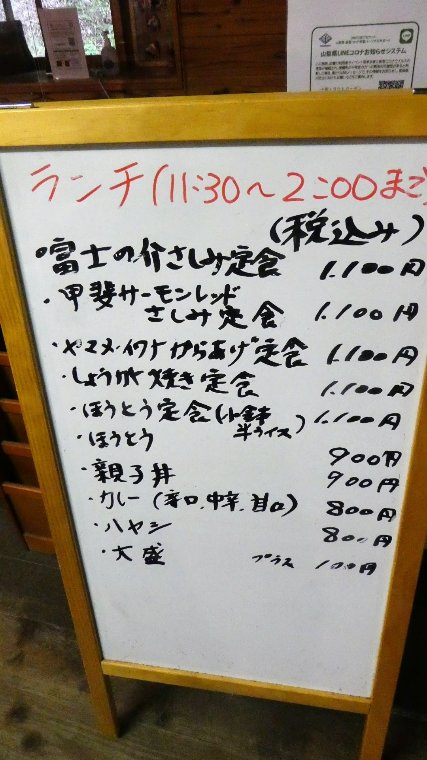 山梨県LINEコロナお知らせシステム
ランチ(11:30～2:00まで)
(税込み)
・富士の介さしみ定食 1.100円
・甲斐サーモンレッド
さしみ定食 1.100円
・ヤマメ・イワナからあげ定食 1.100円
・しょうが焼き定食 1.100円
・ほうとう定食(小鉢 半ライス) 1.100円
・ほうとう 900円
・親子丼 900円
・カレー(辛口.中辛.甘口) 800円
・ハヤシ 800円
・大盛 プラス 100円